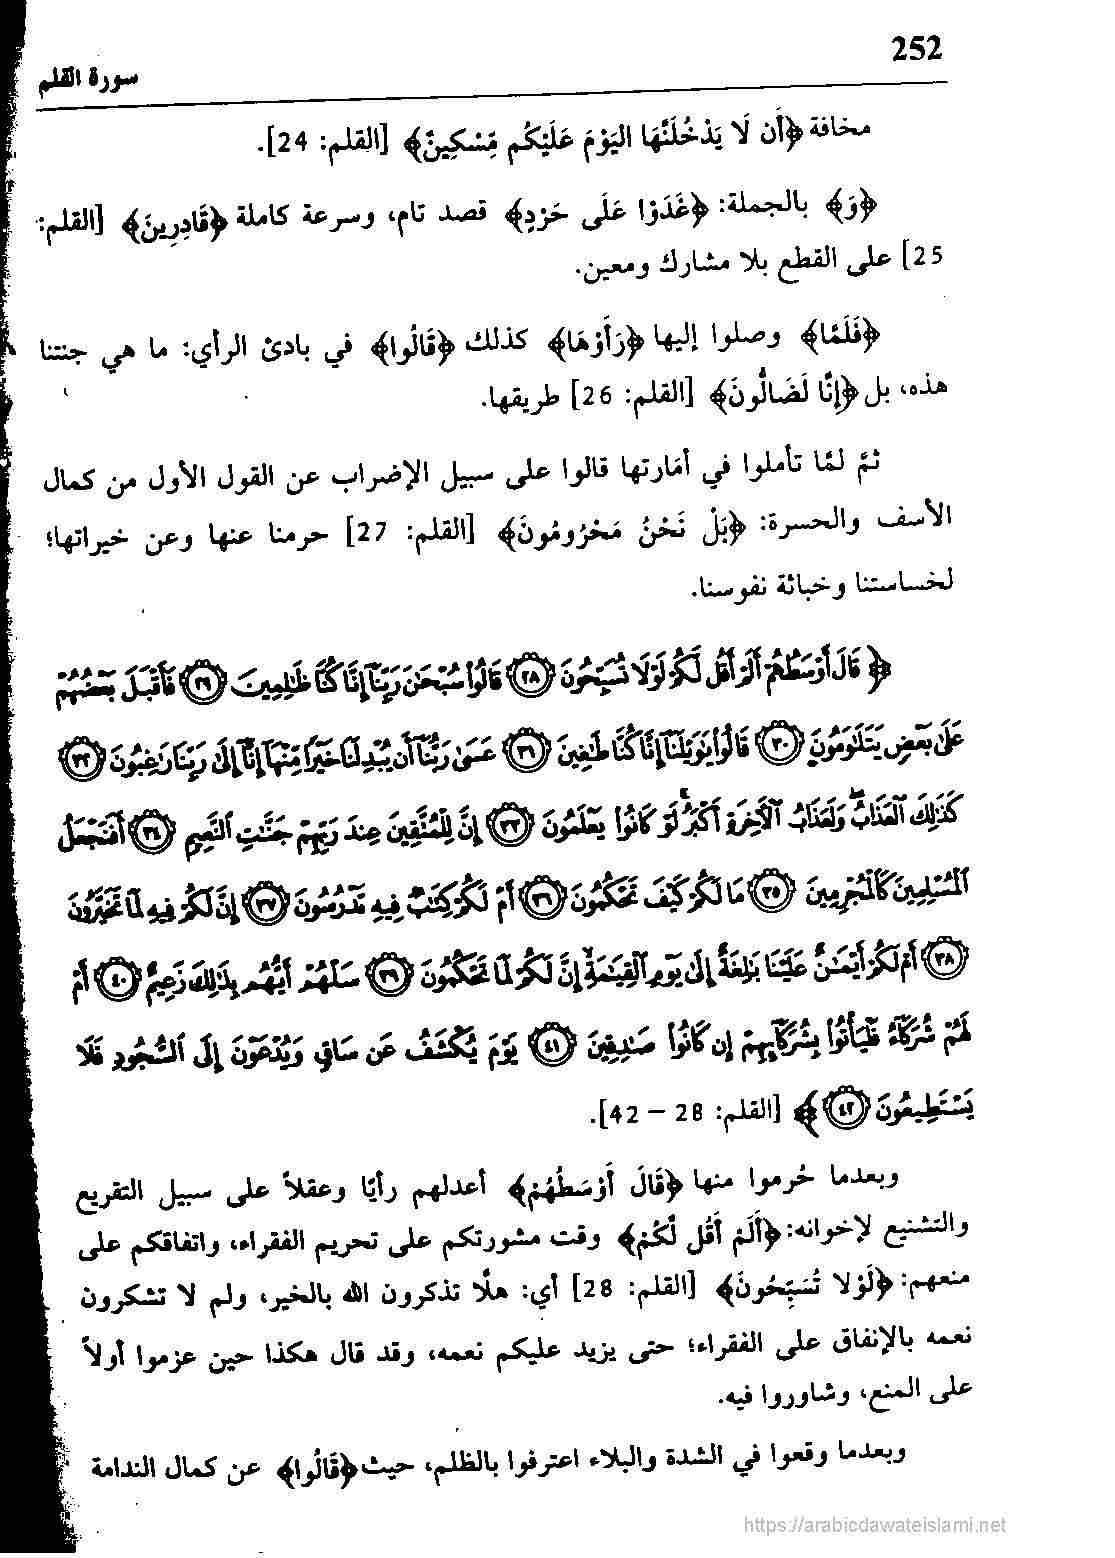 252
سورة القلم
مخافة ﴿أَن لَا يَدْخُلَنَّهَا اليَوْمَ عَلَيْكُم مِّسْكِينٌ﴾ [القلم: 24].
﴿وَ﴾ بالجملة: ﴿غَدَوْا عَلَى حَرْدٍ﴾ قصد تام، وسرعة كاملة ﴿قَادِرِينَ﴾ [القلم:
25] على القطع بلا مشارك ومعين.
﴿فَلَمَّا﴾ وصلوا إليها ﴿رَأَوْهَا﴾ كذلك ﴿قَالُوا﴾ في بادئ الرأي: ما هي جنتنا
هذه، بل ﴿إِنَّا لَضَالُّونَ﴾ [القلم: 26] طريقها.
ثمَّ لمَّا تأملوا في أمَارتها قالوا على سبيل الإضراب عن القول الأول من كمال
الأسف والحسرة: ﴿بَلْ نَحْنُ مَحْرُومُونَ﴾ [القلم: 27] حرمنا عنها وعن خيراتها؛
لخساستنا وخباثة نفوسنا.
﴿ قَالَ أَوْسَطُهُمْ أَلَمْ أَقُل لَّكُمْ لَوْلَا تُسَبِّحُونَ ﴿٢٨﴾ قَالُوا۟ سُبْحَـٰنَ رَبِّنَآ إِنَّا كُنَّا ظَـٰلِمِينَ ﴿٢٩﴾ فَأَقْبَلَ بَعْضُهُمْ
عَلَىٰ بَعْضٍ يَتَلَـٰوَمُونَ ﴿٣٠﴾ قَالُوا۟ يَـٰوَيْلَنَآ إِنَّا كُنَّا طَـٰغِينَ ﴿٣١﴾ عَسَىٰ رَبُّنَآ أَن يُبْدِلَنَا خَيْرًا مِّنْهَآ إِنَّآ إِلَىٰ رَبِّنَا رَٰغِبُونَ ﴿٣٢﴾
كَذَٰلِكَ ٱلْعَذَابُ ۖ وَلَعَذَابُ ٱلْـَٔاخِرَةِ أَكْبَرُ ۚ لَوْ كَانُوا۟ يَعْلَمُونَ ﴿٣٣﴾ إِنَّ لِلْمُتَّقِينَ عِندَ رَبِّهِمْ جَنَّـٰتِ ٱلنَّعِيمِ ﴿٣٤﴾ أَفَنَجْعَلُ
ٱلْمُسْلِمِينَ كَٱلْمُجْرِمِينَ ﴿٣٥﴾ مَا لَكُمْ كَيْفَ تَحْكُمُونَ ﴿٣٦﴾ أَمْ لَكُمْ كِتَـٰبٌ فِيهِ تَدْرُسُونَ ﴿٣٧﴾ إِنَّ لَكُمْ فِيهِ لَمَا تَخَيَّرُونَ
﴿٣٨﴾ أَمْ لَكُمْ أَيْمَـٰنٌ عَلَيْنَا بَـٰلِغَةٌ إِلَىٰ يَوْمِ ٱلْقِيَـٰمَةِ ۙ إِنَّ لَكُمْ لَمَا تَحْكُمُونَ ﴿٣٩﴾ سَلْهُمْ أَيُّهُم بِذَٰلِكَ زَعِيمٌ ﴿٤٠﴾ أَمْ
لَهُمْ شُرَكَآءُ فَلْيَأْتُوا۟ بِشُرَكَآئِهِمْ إِن كَانُوا۟ صَـٰدِقِينَ ﴿٤١﴾ يَوْمَ يُكْشَفُ عَن سَاقٍ وَيُدْعَوْنَ إِلَى ٱلسُّجُودِ فَلَا
يَسْتَطِيعُونَ ﴿٤٢﴾ ﴾ [القلم: 28 – 42].
وبعدما حُرموا منها ﴿قَالَ أَوْسَطُهُمْ﴾ أعدلهم رأيًا وعقلاً على سبيل التقريع
والتشنيع لإخوانه: ﴿أَلَمْ أَقُل لَّكُمْ﴾ وقت مشورتكم على تحريم الفقراء، واتفاقكم على
منعهم: ﴿لَوْلا تُسَبِّحُونَ﴾ [القلم: 28] أي: هلَّا تذكرون الله بالخير، ولم لا تشكرون
نعمه بالإنفاق على الفقراء؛ حتى يزيد عليكم نعمه، وقد قال هكذا حين عزموا أولاً
على المنع، وشاوروا فيه.
وبعدما وقعوا في الشدة والبلاء اعترفوا بالظلم، حيث ﴿قَالُوا﴾ عن كمال الندامة
https://arabicdawateislami.net